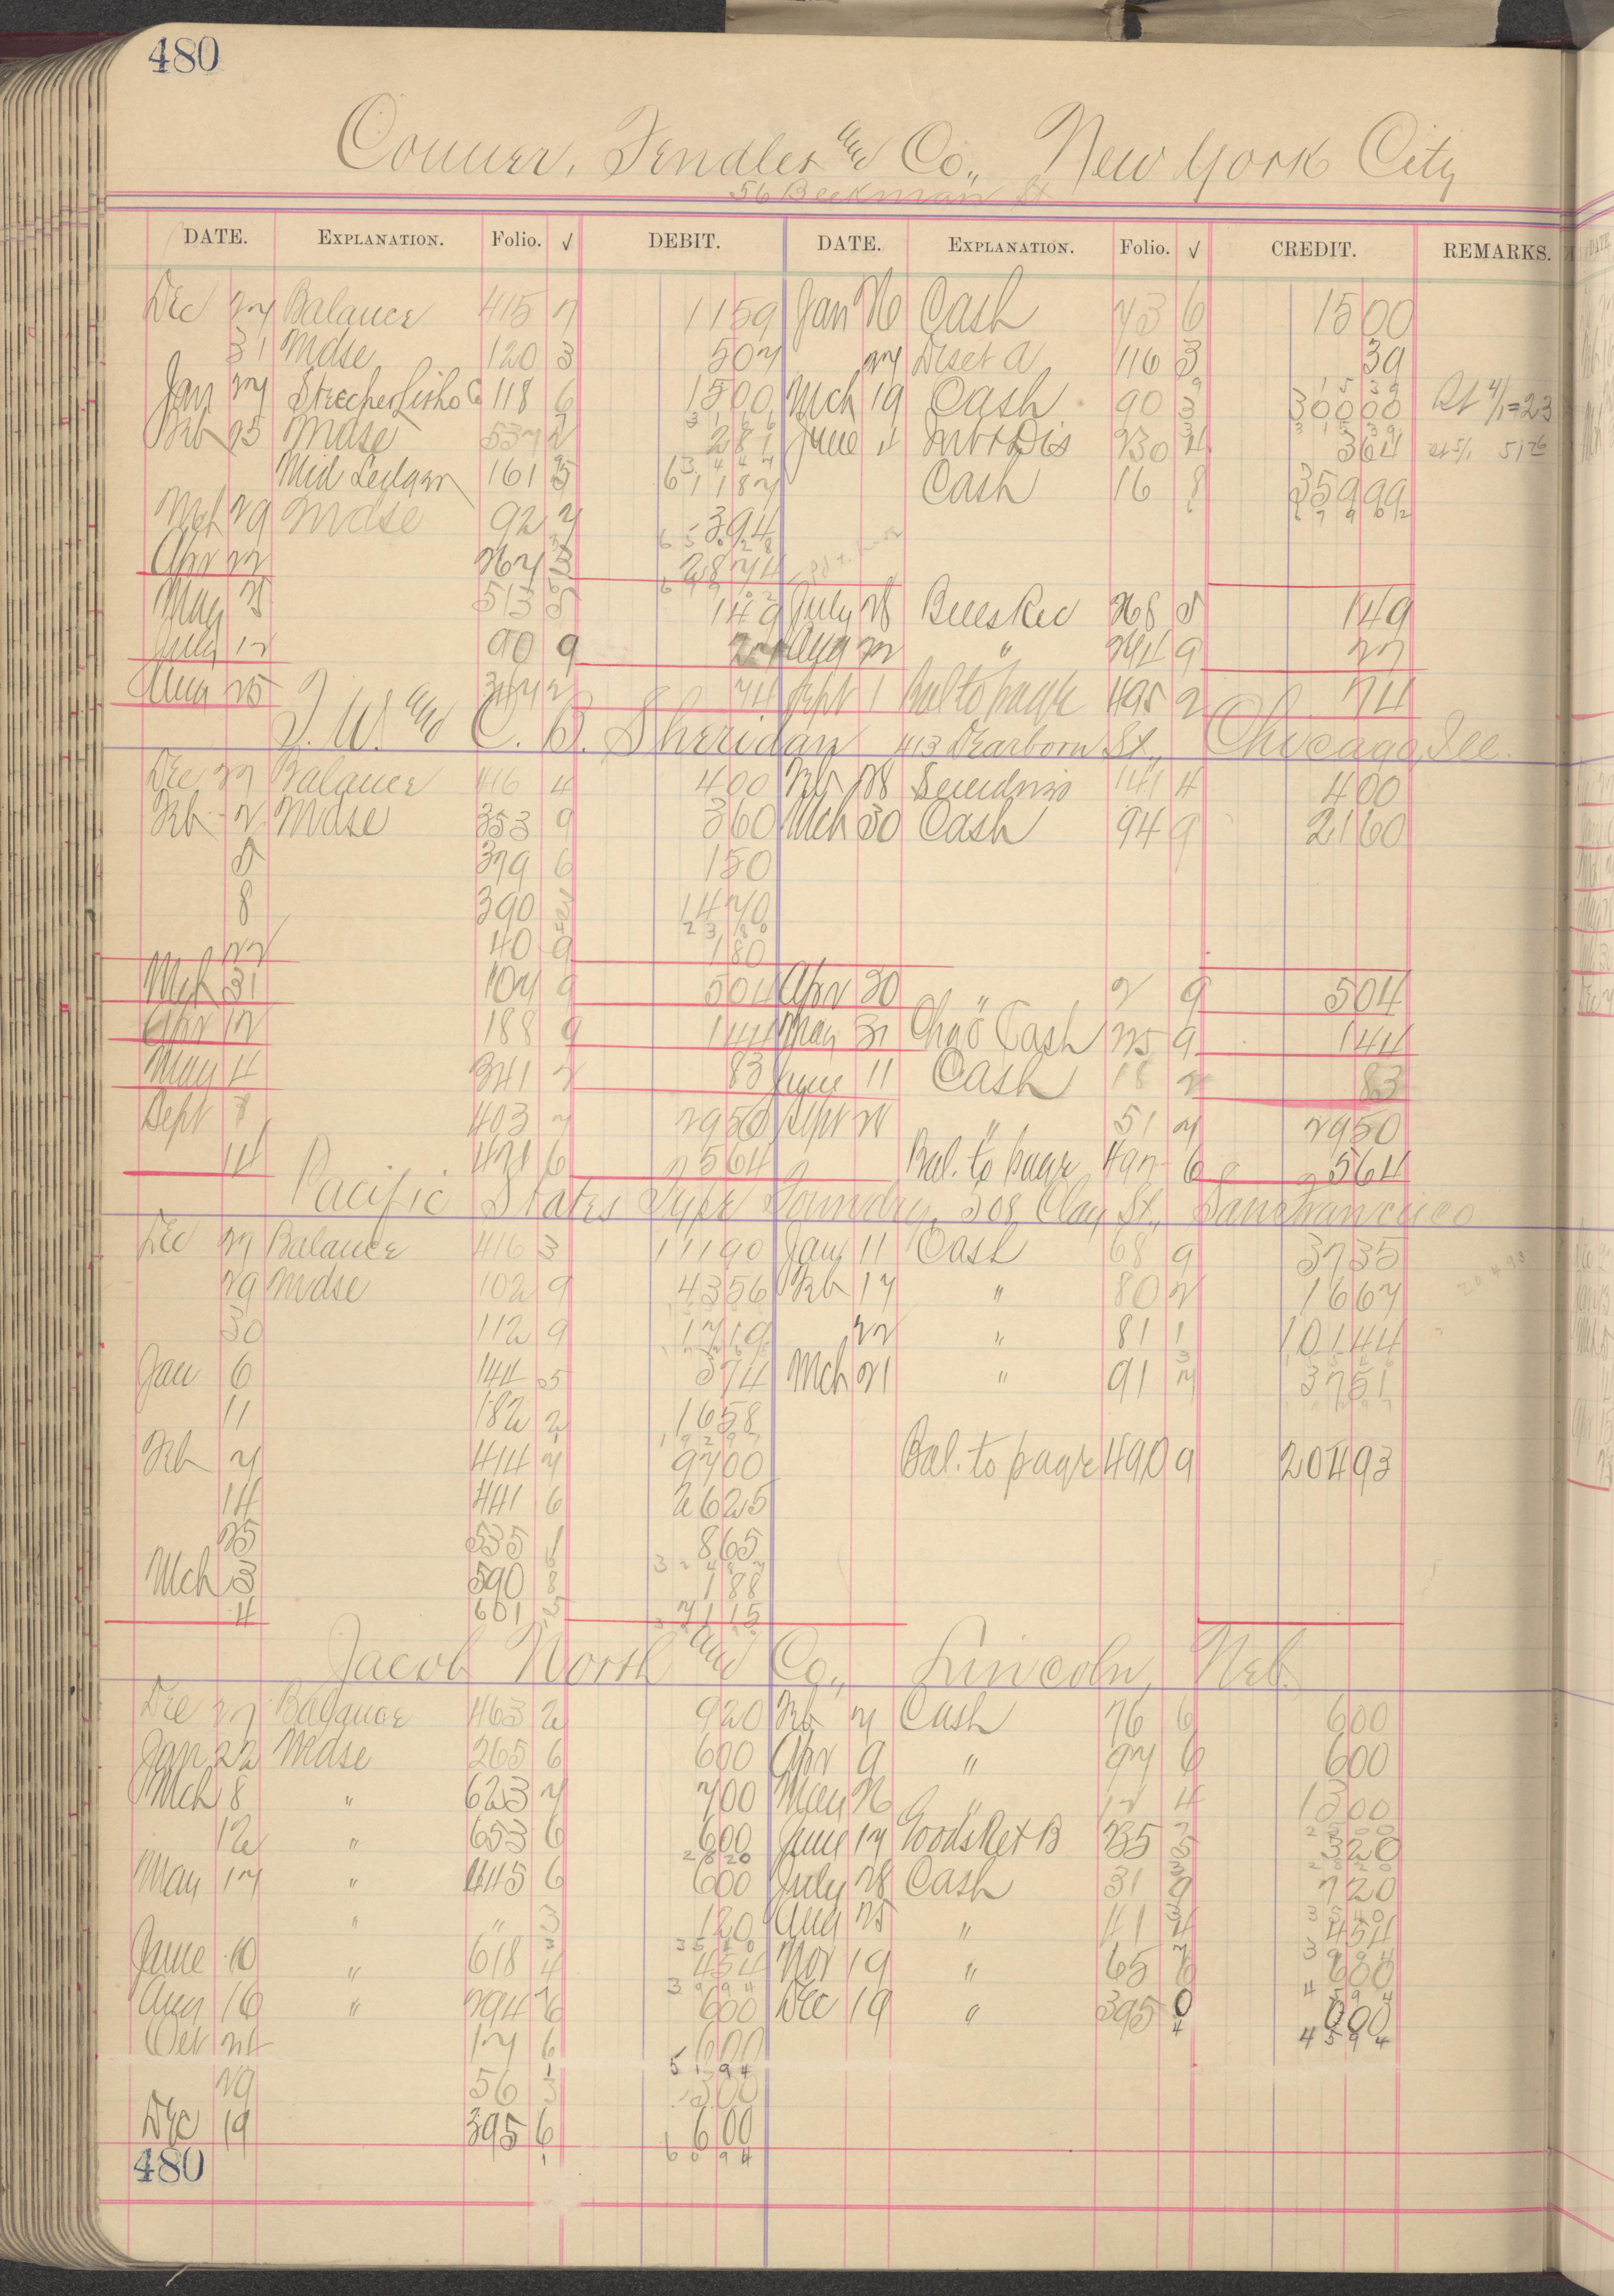 480
Conner, Fendler and Co., New York City
56 Beekman St
DATE. EXPLANATION. Folio. √ DEBIT. DATE. EXPLANATION. Folio. √ CREDIT. REMARKS.
Dec 27 Balance 415 7 1159 Jan 26 Cash 73 6 1500
31 Mdse 120 3 507 27 Disct a 116 3 39
Jan 27 Strecher Litho Co 118 6 1500 Mch 19 Cash 90 3 30000
Feb 25 Mdse 537 2 281 June 4 Int & Dis 230 4 364
Mid Ledger 161 5 61187 Cash 16 8 35999
Mch 29 Mdse 92 7 394
Apr 22 267 3 2874
May 25 513 5 149 July 28 Bills Rec 268 5 149
July 12 90 9 27 Aug 22 " 274 9 27
Aug 25 347 2 74 Sept 1 Bal to page 495 2 74
T. W. and C. B. Sheridan 413 Dearborn St., Chicago, Ill.
Dec 27 Balance 416 4 400 Feb 28 Sundries 141 4 400
Feb 2 Mdse 353 9 360 Mch 30 Cash 94 9 2160
5 379 6 150
8 390 1470
2 3 8 0
22 40 9 180
Mch 31 107 9 504 Apr 30 " 2 9 504
Apr 12 188 9 144 May 31 Chgo Cash 25 9 144
May 4 341 2 83 June 11 Cash 18 2 83
Sept 7 403 7 2950 Sept 21 " 51 7 2950
14 421 6 2564 Bal. to page 497 6 2564
Pacific States Type Foundry, 508 Clay St., San Francisco
Dec 27 Balance 416 3 11190 Jan 11 Cash 68 9 3735
29 Mdse 102 9 4356 Feb 17 " 80 2 1667
30 112 9 1719 22 " 81 1 10144
Jan 6 144 5 374 Mch 21 " 91 7 3751
11 182 2 1658
1 9 2 9 7
Feb 7 414 7 9700 Bal. to page 490 9 20493
14 441 6 2625
25 535 1 865
Mch 3 590 8 188
4 601 5 7115
Jacob North and Co., Lincoln, Neb.
Dec 27 Balance 463 2 920 Feb 7 Cash 76 6 600
Jan 22 Mdse 265 6 600 Apr 9 " 97 6 600
Mch 8 " 623 7 700 May 26 " 12 4 1300
12 " 653 6 600 June 17 Goods Ret B 235 5 320
2 8 2 0
May 17 " 445 6 600 July 28 Cash 31 9 720
" " 3 120 Aug 25 " 41 4 454
3 5 4 0 3 5 4 0
June 10 " 618 4 454 Nov 19 " 65 6 600
3 9 9 4 3 9 9 4
Aug 16 " 294 6 600 Dec 19 " 395 0 600
4 5 9 4
Oct 24 17 6 600
5 1 9 4
29 56 3 300
Dec 19 395 6 600
6 0 9 4
480